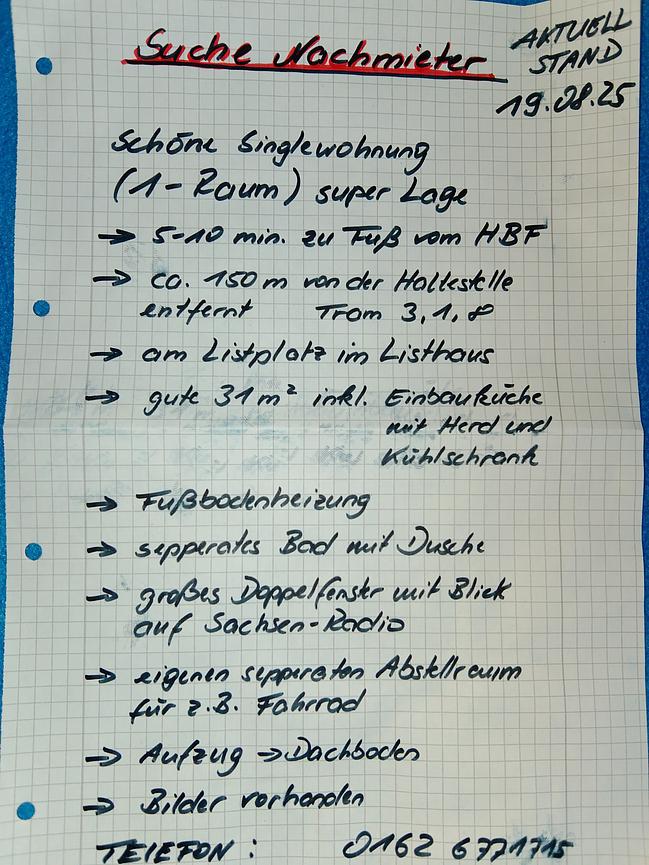 Suche Nachmieter
AKTUELL
STAND
19.08.25
Schöne Singlewohnung
(1-Raum) super Lage
→ 5-10 min. zu Fuß vom HBF
→ ca. 150 m von der Haltestelle
entfernt Tram 3,1,8
→ am Listplatz im Listhaus
→ gute 31 m² inkl. Einbauküche
mit Herd und
Kühlschrank
→ Fußbodenheizung
→ sepperates Bad mit Dusche
→ großes Doppelfenster mit Blick
auf Sachsen-Radio
→ eigenen sepperaten Abstellraum
für z.B. Fahrrad
→ Aufzug → Dachboden
→ Bilder vorhanden
TELEFON : 0162 6771715